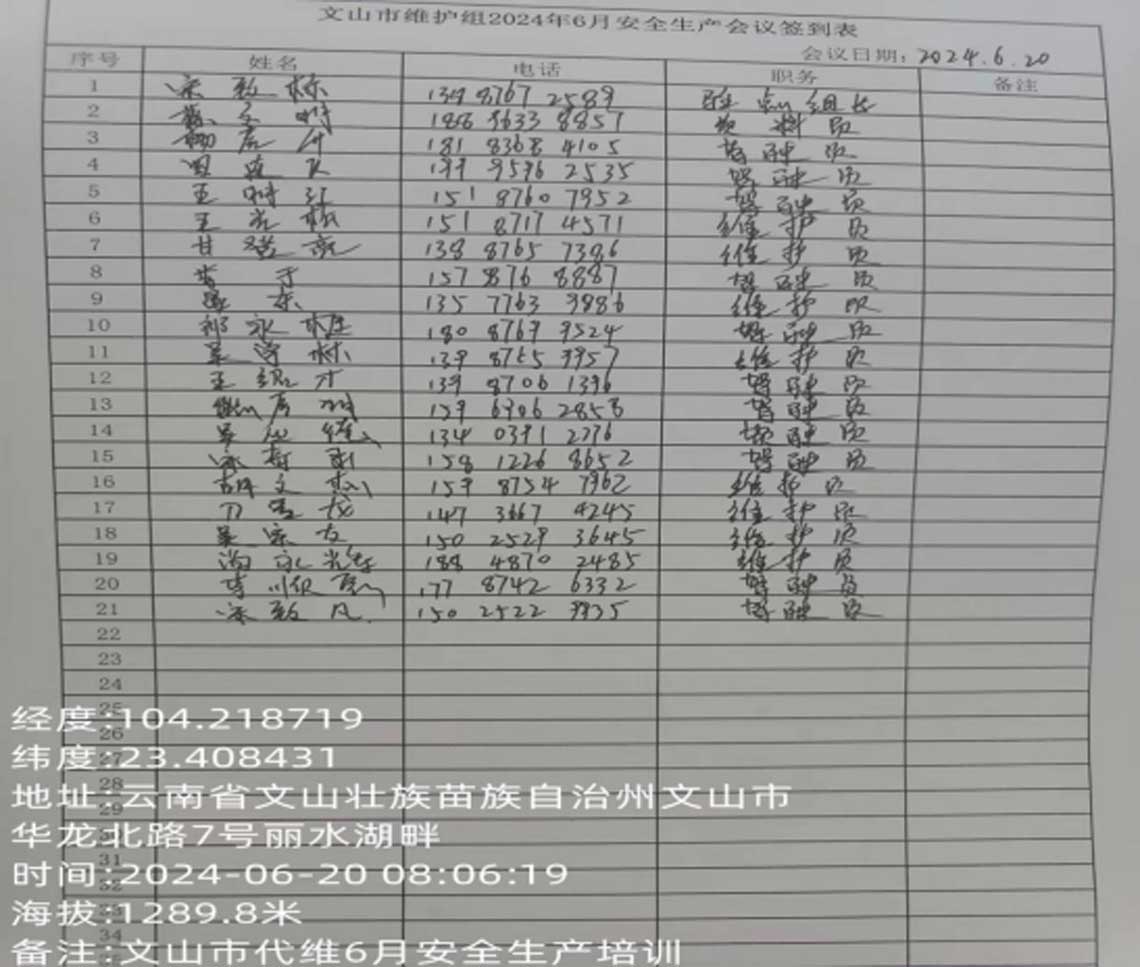 文山市维护组2024年6月安全生产会议签到表
会议日期：2024.6.20
序号 姓名 电话 职务 备注
1 宋 139 8767 2589 组长
2 188 9633 8857 资料员
3 杨 181 8368 4105 驾驶员
4 199 9596 2535 驾驶员
5 王明红 151 8760 7952 驾驶员
6 王光栋 151 8717 4571 维护员
7 甘 138 8765 7386 维护员
8 157 876 8887 驾驶员
9 东 135 7763 9886 维护员
10 祁永柱 180 8769 9524 驾驶员
11 吴 林 139 8765 9957 维护员
12 王 才 139 8706 1396 驾驶员
13 159 6906 2858 驾驶员
14 吴 134 0391 2776 驾驶员
15 宋 158 1226 8652 驾驶员
16 胡文 159 8754 7962 维护员
17 刀 龙 147 3667 4245 维护员
18 吴宗友 150 2529 3645 维护员
19 永 188 4870 2485 维护员
20 李顺 177 8742 6332 驾驶员
21 宋 凡 150 2522 9935 驾驶员
22
23
24
25
26
27
28
29
31
32
33
34
经度:104.218719
纬度:23.408431
地址:云南省文山壮族苗族自治州文山市
华龙北路7号丽水湖畔
时间:2024-06-20 08:06:19
海拔:1289.8米
备注:文山市代维6月安全生产培训